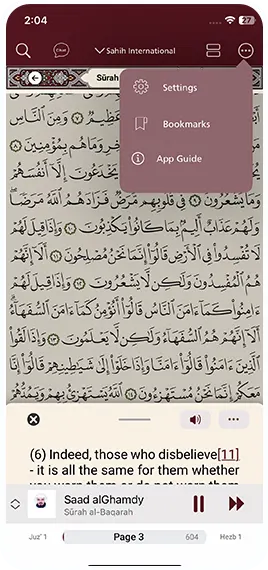 2:04
27
Chat
Sahih International
Sūrah
Settings
Bookmarks
App Guide
عَظِيمٌ ٧ وَمِنَ ٱلنَّاسِ
خِرِ وَمَا هُم بِمُؤْمِنِينَ ٨
يَخْدَعُونَ إِلَّآ أَنفُسَهُمْ
وَمَا يَشْعُرُونَ ٩ فِي قُلُوبِهِم مَّرَضٌ فَزَادَهُمُ ٱللَّهُ مَرَضًا
وَلَهُمْ عَذَابٌ أَلِيمٌۢ بِمَا كَانُوا۟ يَكْذِبُونَ ١٠ وَإِذَا قِيلَ لَهُمْ
لَا تُفْسِدُوا۟ فِي ٱلْأَرْضِ قَالُوٓا۟ إِنَّمَا نَحْنُ مُصْلِحُونَ ١١ أَلَآ إِنَّهُمْ
هُمُ ٱلْمُفْسِدُونَ وَلَٰكِن لَّا يَشْعُرُونَ ١٢ وَإِذَا قِيلَ لَهُمْ
ءَامِنُوا۟ كَمَآ ءَامَنَ ٱلنَّاسُ قَالُوٓا۟ أَنُؤْمِنُ كَمَآ ءَامَنَ ٱلسُّفَهَآءُ
أَلَآ إِنَّهُمْ هُمُ ٱلسُّفَهَآءُ وَلَٰكِن لَّا يَعْلَمُونَ ١٣ وَإِذَا لَقُوا۟
ٱلَّذِينَ ءَامَنُوا۟ قَالُوٓا۟ ءَامَنَّا وَإِذَا خَلَوْا۟ إِلَىٰ شَيَٰطِينِهِمْ قَالُوٓا۟ إِنَّا
مَعَكُمْ إِنَّمَا نَحْنُ مُسْتَهْزِءُونَ ١٤ ٱللَّهُ يَسْتَهْزِئُ بِهِمْ وَيَمُدُّهُمْ
(6) Indeed, those who disbelieve[11]
- it is all the same for them whether
you warn them or do not warn them
Saad alGhamdy
Sūrah al-Baqarah
Juz' 1
Page 3
604
Hezb 1